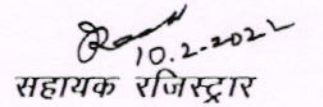 10.2.2022
सहायक रजिस्ट्रार